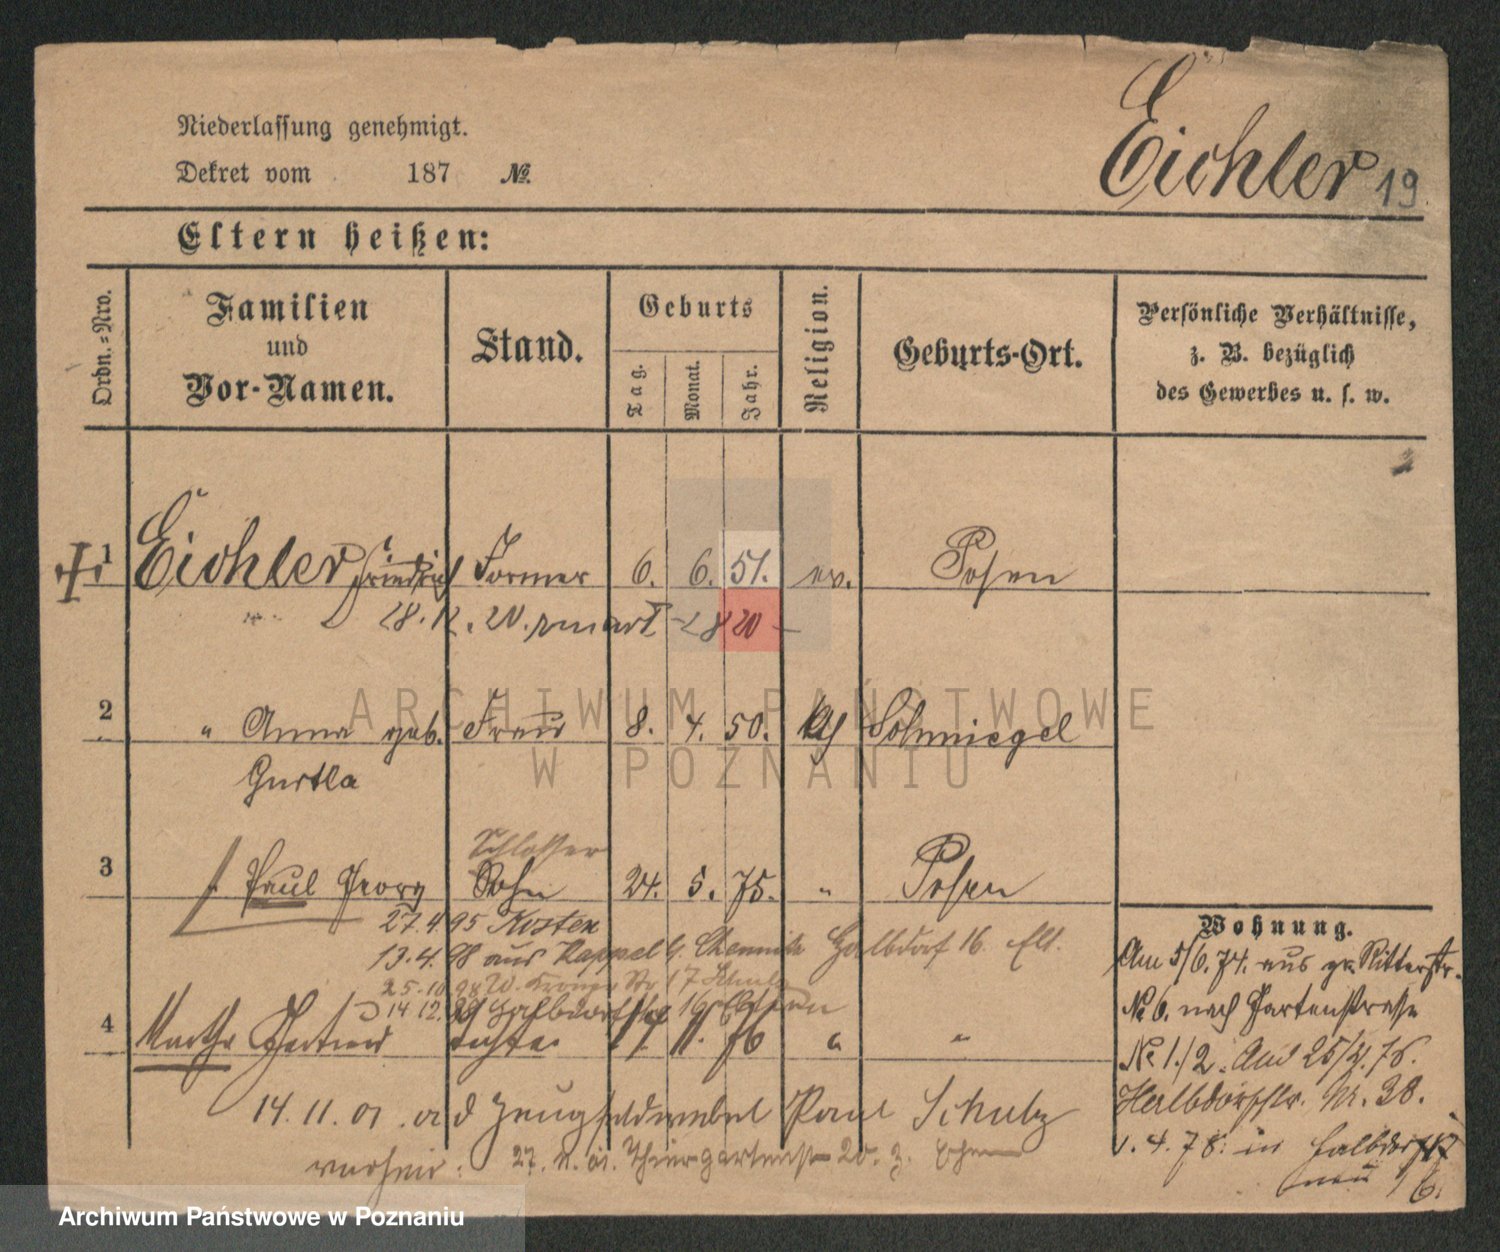 Niederlassung genehmigt.
Dekret vom 187 №.
Eichler 19
Eltern heißen:
Ordn.-Nro.
Familien und Vor-Namen.
Stand.
Geburts
Tag.
Monat.
Jahr.
Religion.
Geburts-Ort.
Persönliche Verhältnisse,
z. B. bezüglich
des Gewerbes u. s. w.
1 Eichler Friedrich Former 6. 6. 51. ev. Posen
28. 12. 20.
2 " Anna geb. Frau 8. 4. 50. Schmiegel
Gurtla
Schlosser
3 Paul Georg Sohn 24. 5. 75. " Posen
27. 4. 95 Kosten
13. 4. 98 aus Kappel b. Chemnitz Halbdorf 16. Elt.
25. 10. 98
14. 12. 98 Halbdorfstr 16 Eltern
4 Martha Gertrud Tochter 17 11. 76 " "
14. 11. 01. Paul Schulz
27. Thiergartenstr
Wohnung.
Am 5/6. 74. aus gr. Ritterstr.
№ 6. nach Gartenstrasse
№ 1./2. 25/4. 76.
Halbdorfstr. Nr. 38.
1. 4. 78. in Halbdorfstr 17
neu 16.
ARCHIWUM PAŃSTWOWE
W POZNANIU
Archiwum Państwowe w Poznaniu